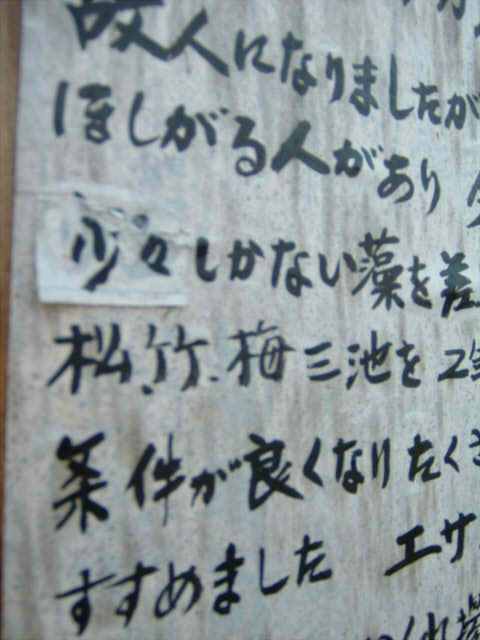 故人になりましたが
ほしがる人があり
少々しかない藻を差
松.竹.梅三池を
条件が良くなりたくさ
すすめました エサ